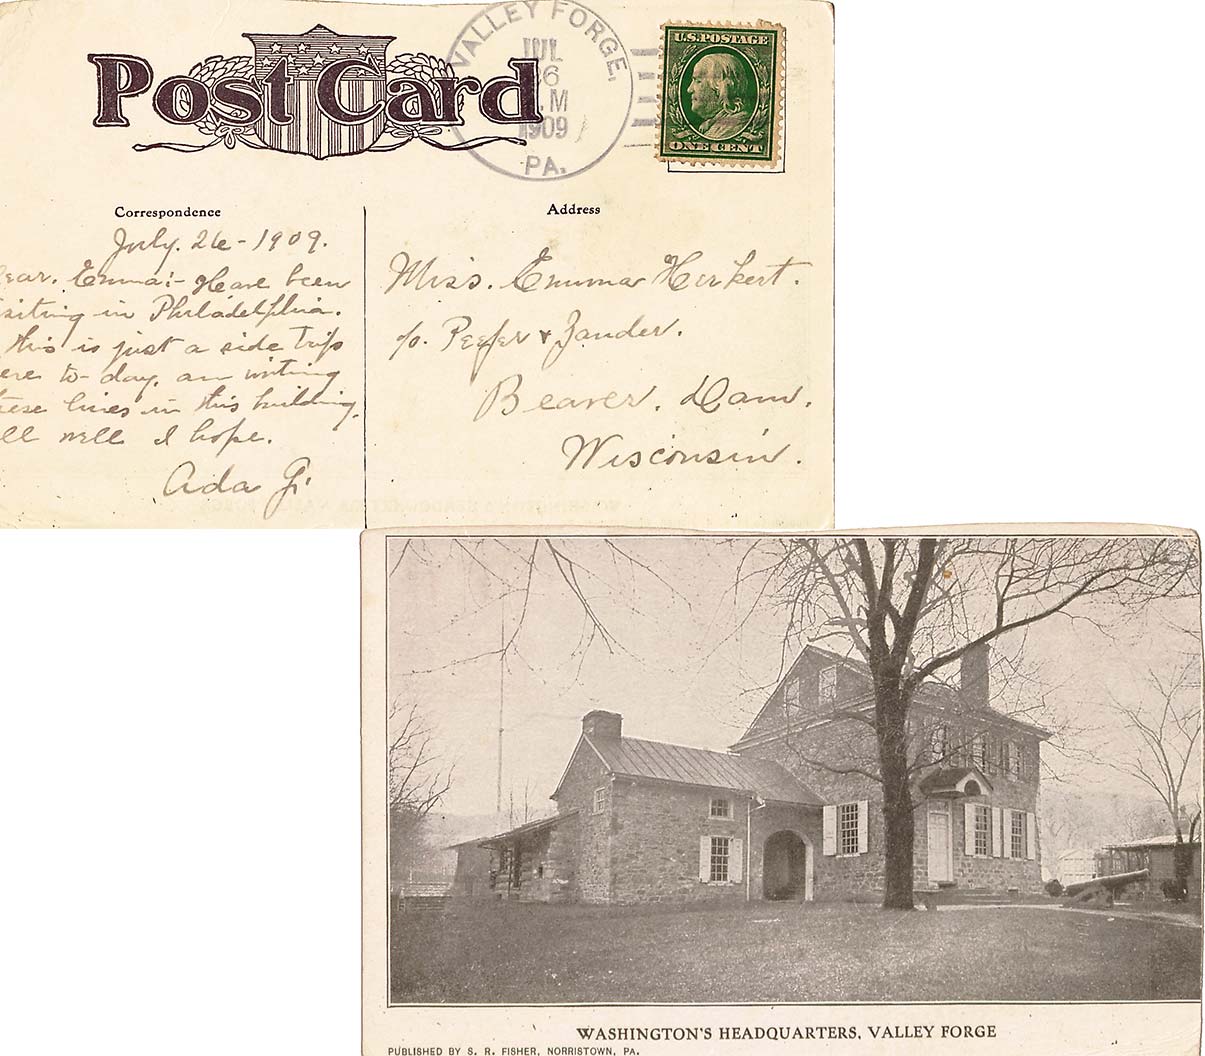 Post Card
VALLEY FORGE,
JUL
26
M
1909
PA.
U.S. POSTAGE
ONE CENT
Correspondence
July. 26 - 1909.
ear. Emma:- Have been
siting in Philadelphia.
this is just a side trip
ere to-day, am writing
ese lines in this building,
ll well I hope.
Ada G.
Address
Miss. Emma Herkert.
c/o. Peefer & Zander.
Beaver. Dam.
Wisconsin.
WASHINGTON'S HEADQUARTERS, VALLEY FORGE
PUBLISHED BY S. R. FISHER, NORRISTOWN, PA.